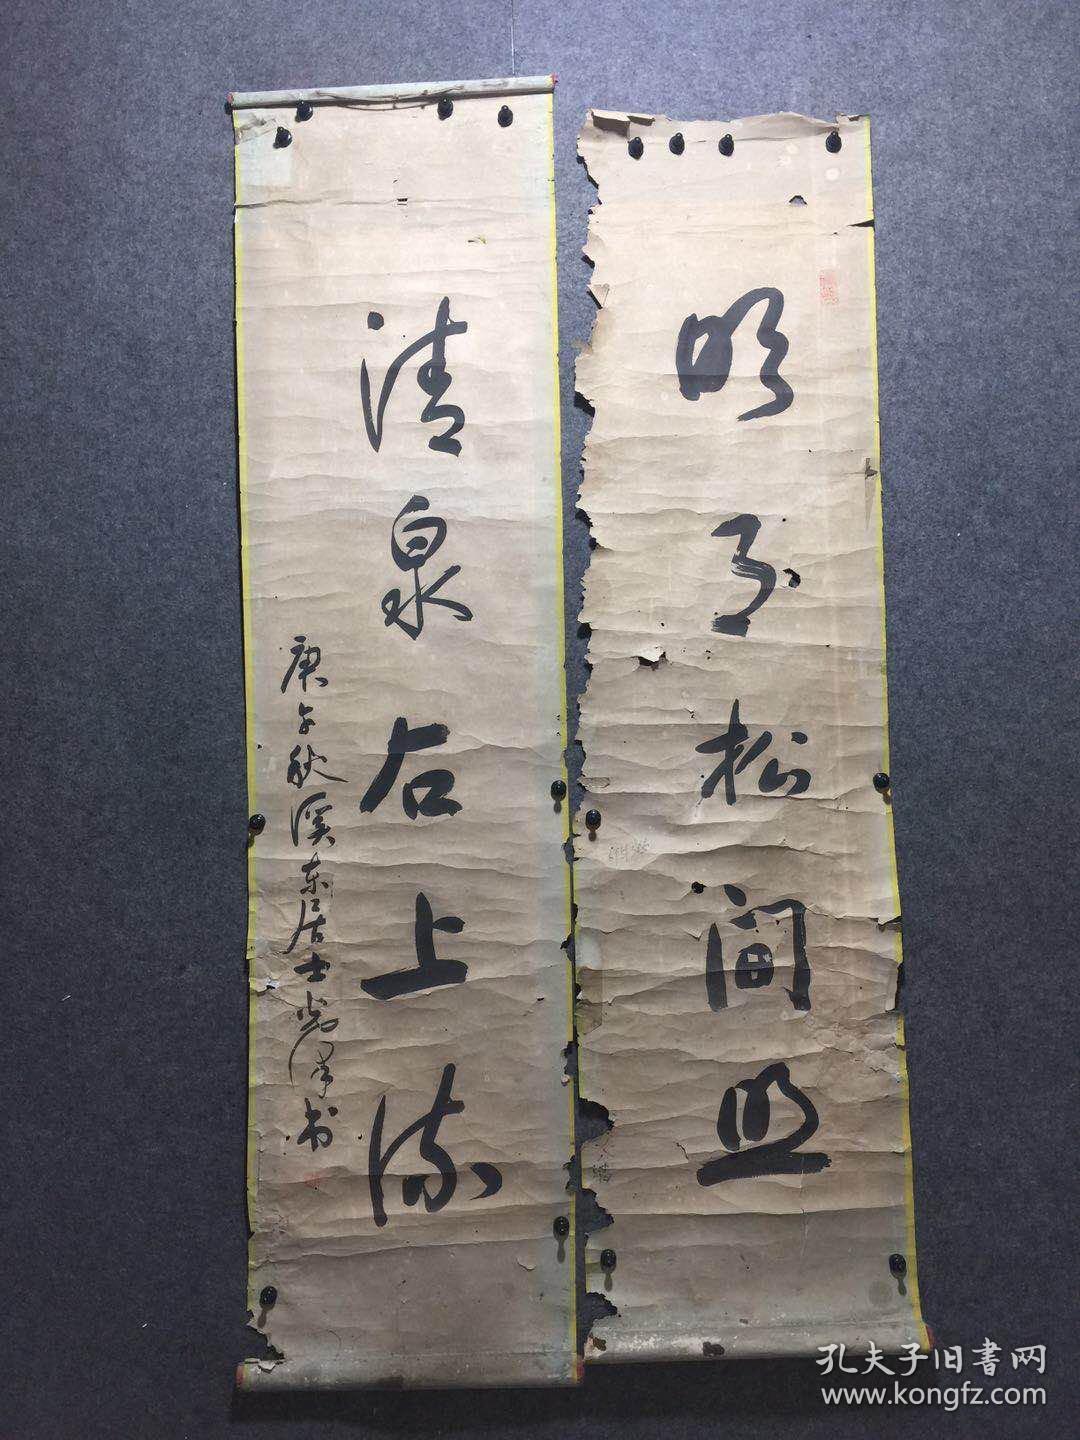 明月松间照
清泉石上流
庚午秋溪东居士
书
孔夫子旧書网
www.kongfz.com